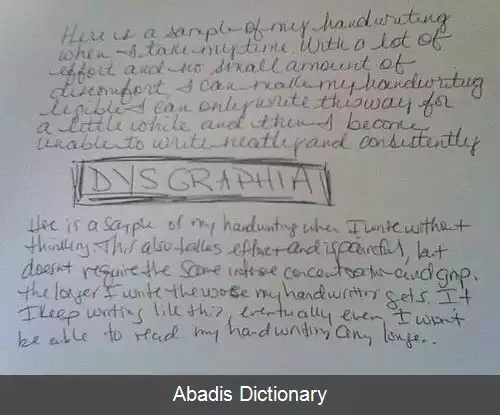 Here is a sample of my handwriting
when I take my time. With a lot of
effort and no small amount of
discomfort, I can make my handwriting
legible. I can only write this way for
a little while and then I become
unable to write neatly and consistently
DYSGRAPHIA
Here is a sample of my handwriting when I write without
thinking. This also takes effort and is painful, but
doesnt require the same intense concentration and grip.
The longer I write the worse my handwriting gets. If
I keep writing like this, eventually even I won't
be able to read my handwriting any longer.
Abadis Dictionary